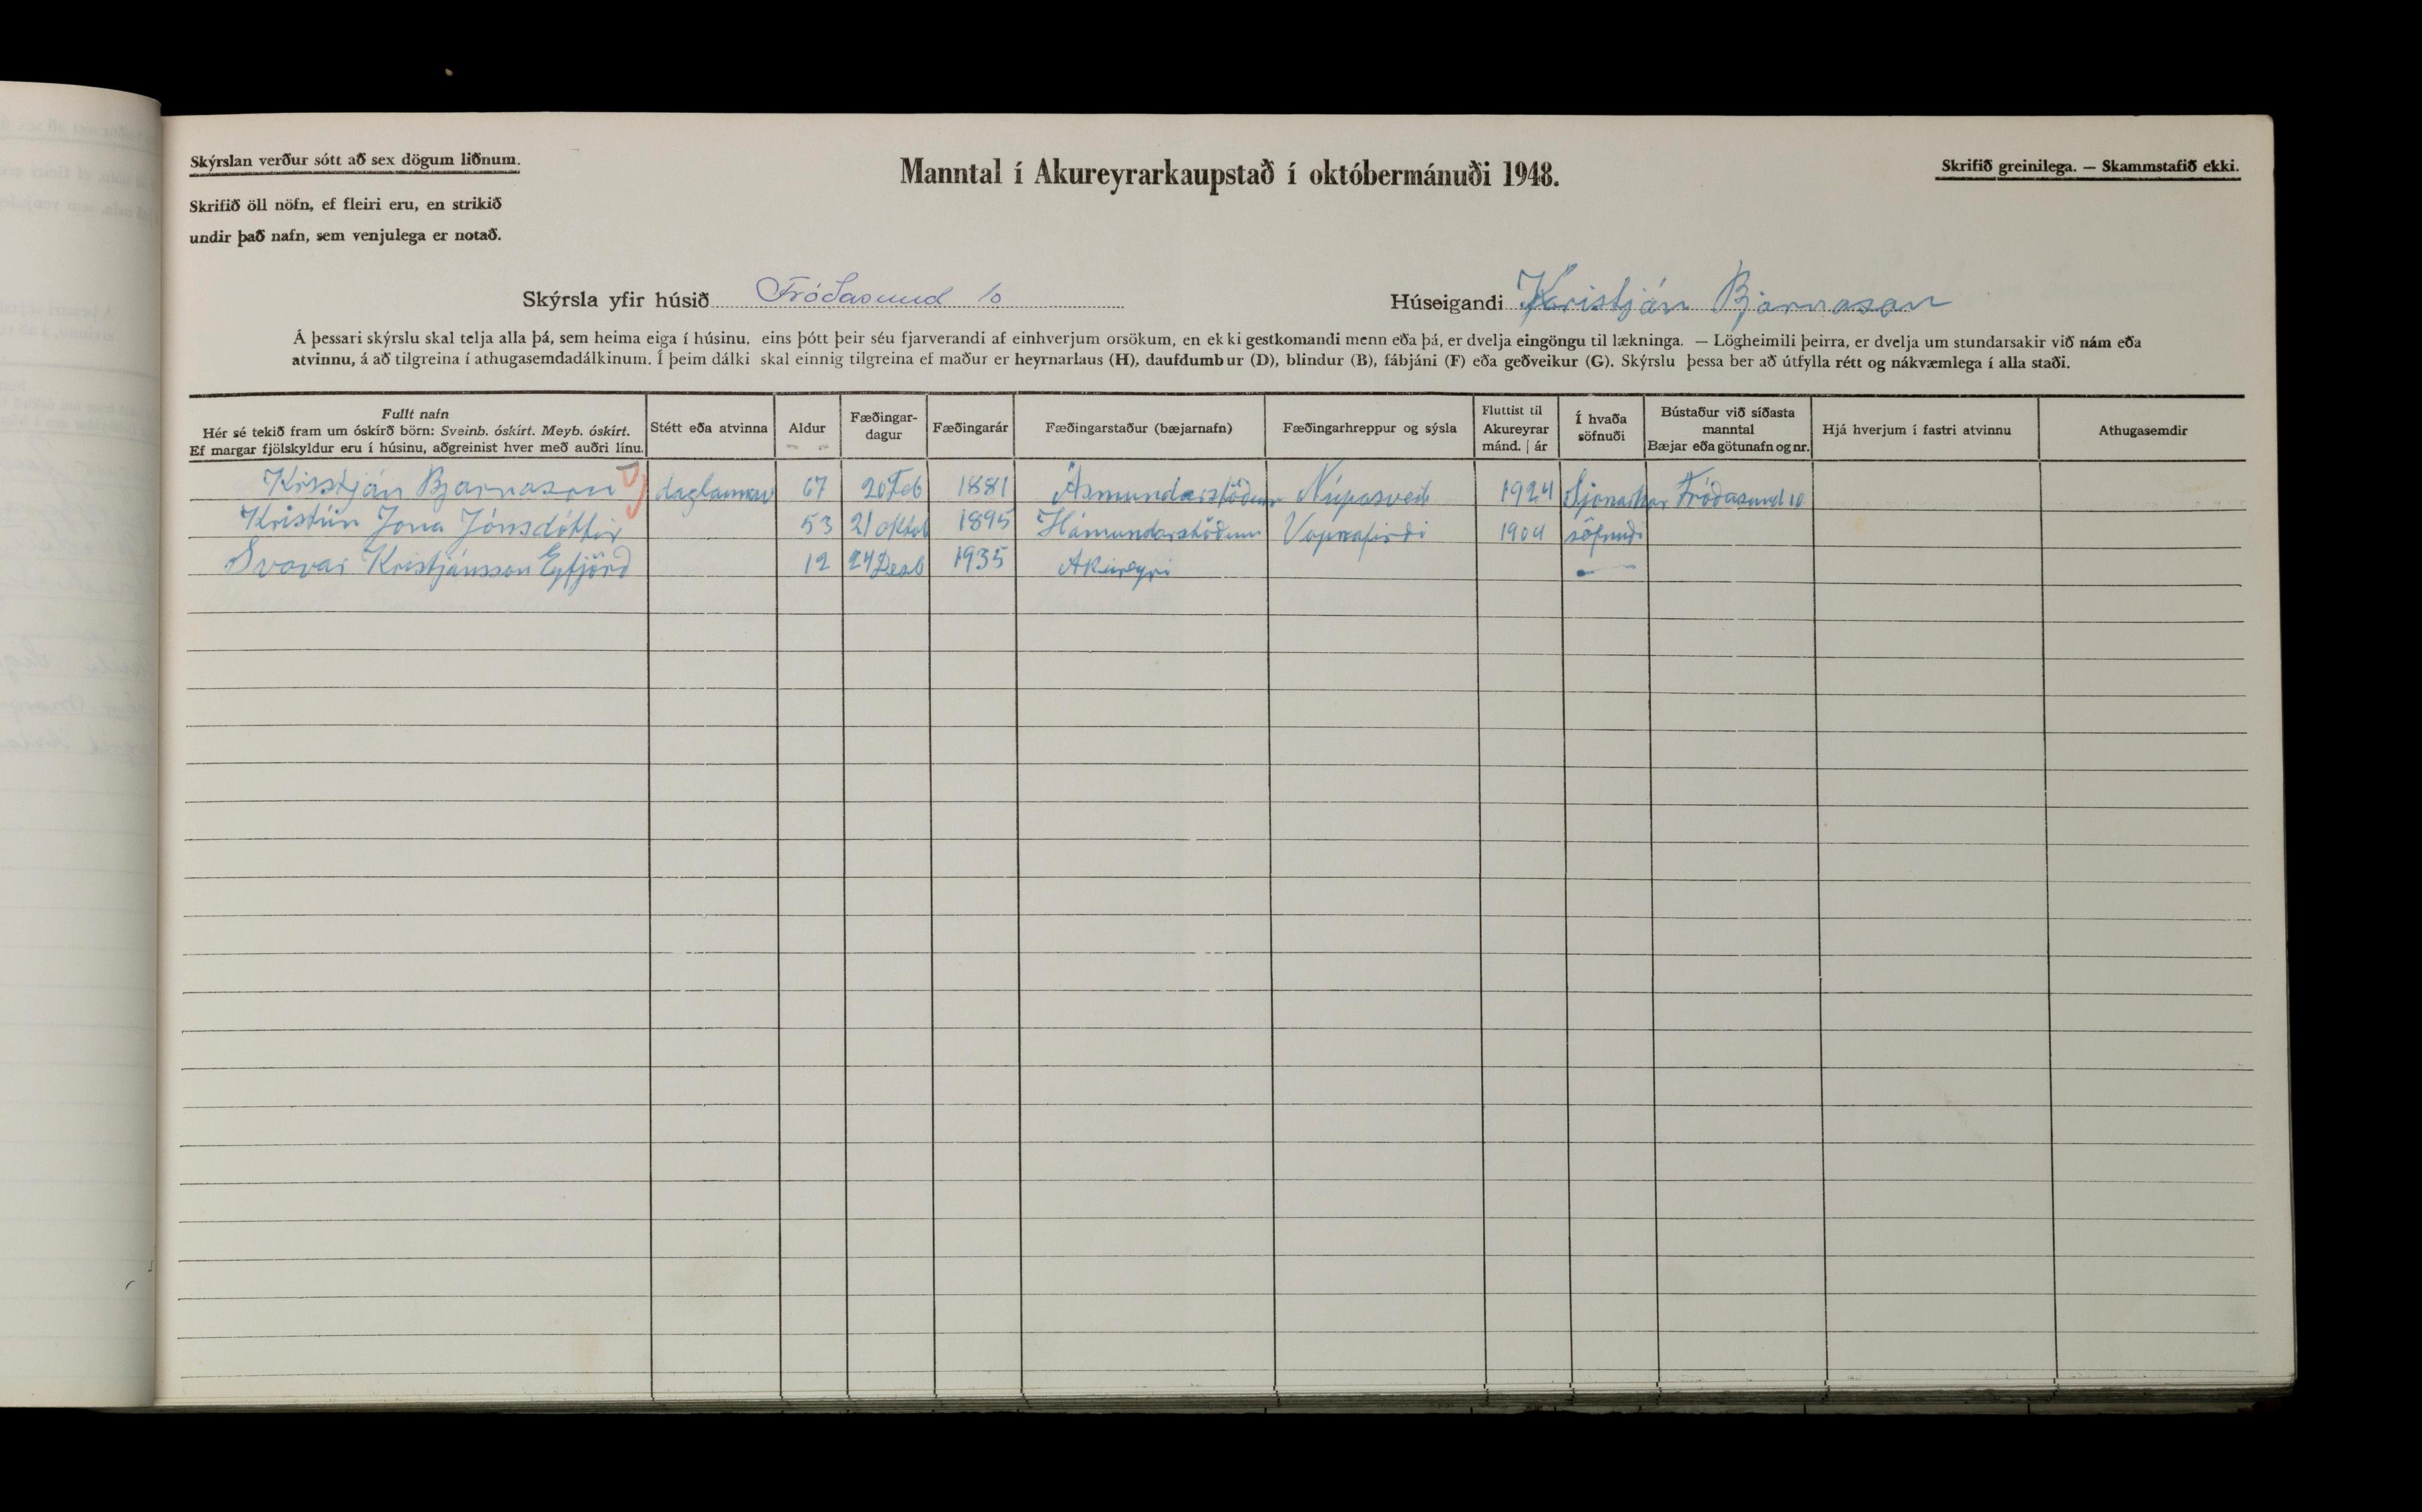 Skýrslan verður sótt að sex dögum liðnum.
Skrifið öll nöfn, ef fleiri eru, en strikið
undir það nafn, sem venjulega er notað.
Manntal í Akureyrarkaupstað í októbermánuði 1948.
Skrifið greinilega. — Skammstafið ekki.
Skýrsla yfir húsið Fróðasund 10
Húseigandi Kristján Bjarnason
Á þessari skýrslu skal telja alla þá, sem heima eiga í húsinu, eins þótt þeir séu fjarverandi af einhverjum orsökum, en ekki gestkomandi menn eða þá, er dvelja eingöngu til lækninga. — Lögheimili þeirra, er dvelja um stundarsakir við nám eða
atvinnu, á að tilgreina í athugasemdadálkinum. Í þeim dálki skal einnig tilgreina ef maður er heyrnarlaus (H), daufdumbur (D), blindur (B), fábjáni (F) eða geðveikur (G). Skýrslu þessa ber að útfylla rétt og nákvæmlega í alla staði.
Fullt nafn
Hér sé tekið fram um óskírð börn: Sveinb. óskírt. Meyb. óskírt.
Ef margar fjölskyldur eru í húsinu, aðgreinist hver með auðri línu.
Stétt eða atvinna
Aldur
Fæðingar-
dagur
Fæðingarár
Fæðingarstaður (bæjarnafn)
Fæðingarhreppur og sýsla
Fluttist til
Akureyrar
mánd. | ár
Í hvaða
söfnuði
Bústaður við síðasta
manntal
Bæjar eða götunafn og nr.
Hjá hverjum í fastri atvinnu
Athugasemdir
Kristján Bjarnason 67 20 Feb 1881 Ásmundarstöðum Núpasveit 1924 Fróðasund 10
Kristín Jona Jónsdóttir 53 21 oktob 1895 Hámundarstöðum Vopnafirði 1904 söfnuði
Svavar Kristjánsson Eyfjörð 12 24 Desb 1935 Akureyri